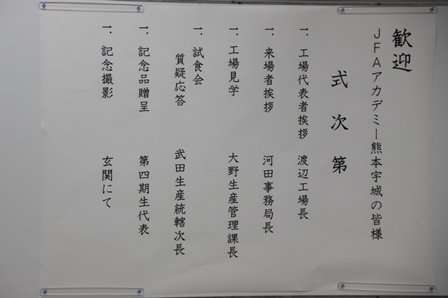 歓迎
JFAアカデミー熊本宇城の皆様
式次第
一．工場代表者挨拶　渡辺工場長
一．来場者挨拶　河田事務局長
一．工場見学　大野生産管理課長
一．試食会
質疑応答　武田生産統轄次長
一．記念品贈呈　第四期生代表
一．記念撮影　玄関にて